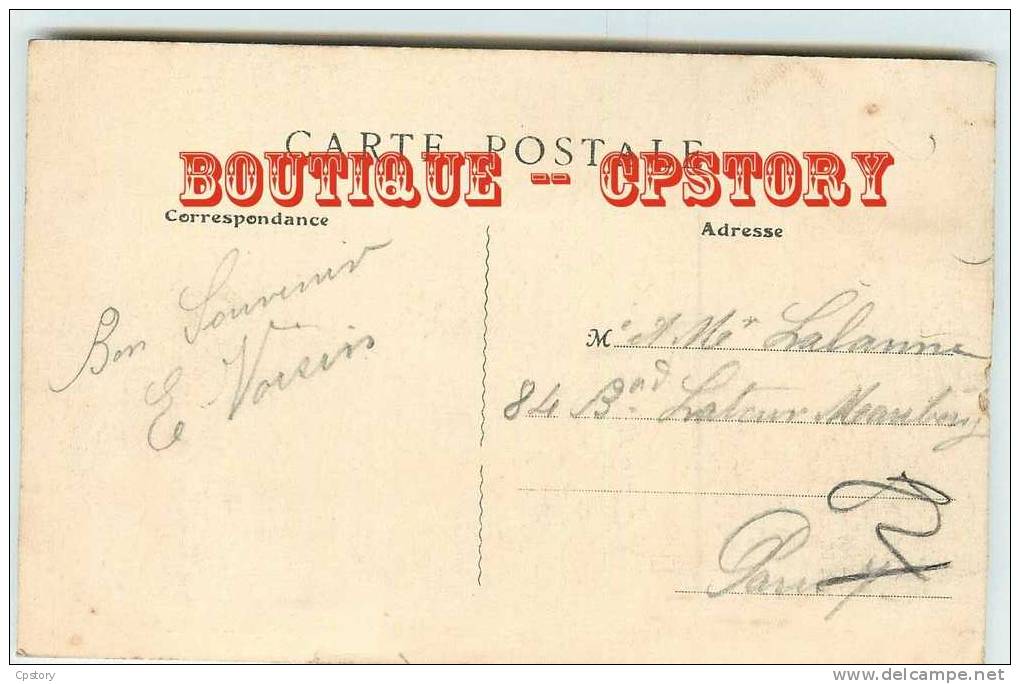 CARTE POSTALE
BOUTIQUE -- CPSTORY
Correspondance
Adresse
Bon Souvenir
E Voisin
M
Lalanne
84 B.nd Latour Maubourg
Paris
Cpstory
delcampe.net